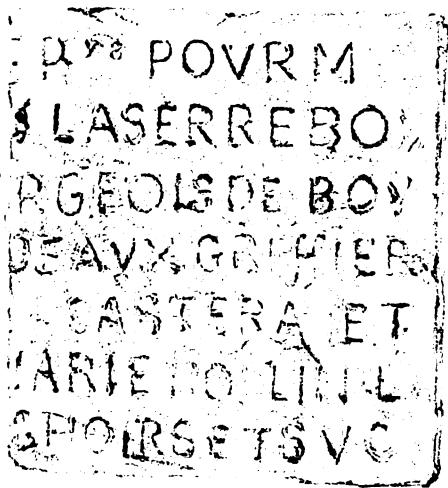 POVR M
LASERRE BO
RGEOIS DE BOV
DEAVX GREFFIER
CASTERA ET
MARIE
SPOIRS ET SVC